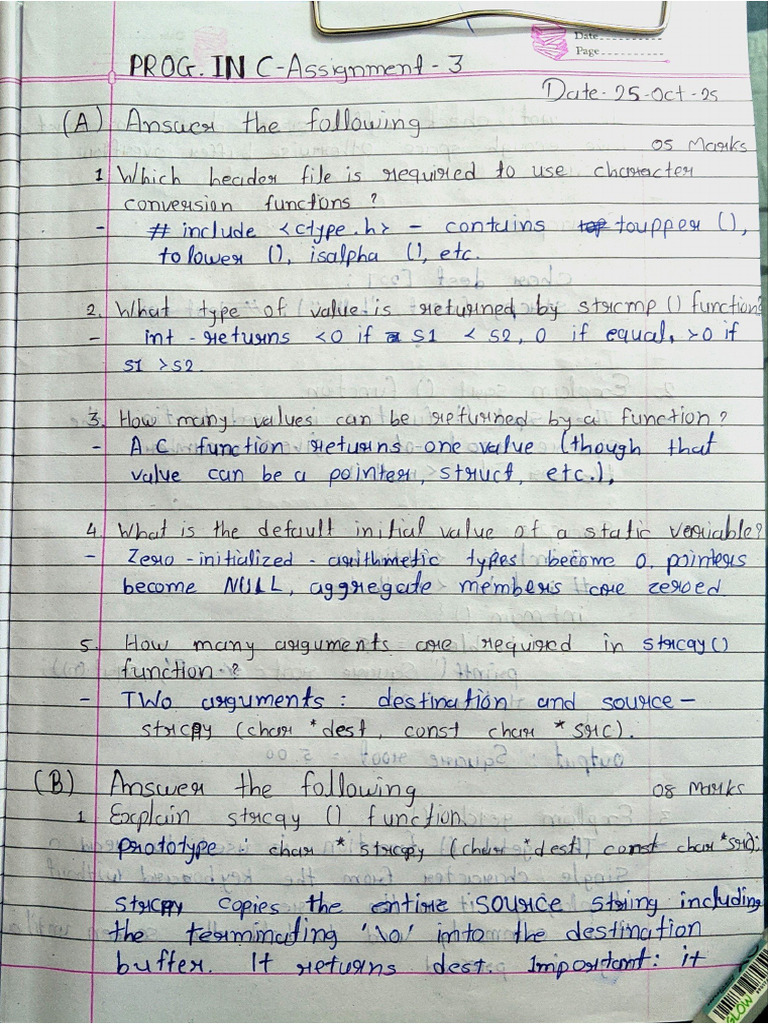 Date
Page
PROG. IN C-Assignment - 3
Date - 25-Oct-25
(A) Answer the following
05 Marks
1 Which header file is required to use character
conversion functions ?
- # include <ctype.h> - contains toupper (),
tolower (), isalpha (), etc.
2. What type of value is returned by strcmp () function?
- int - returns <0 if s1 < s2, 0 if equal, >0 if
s1 >s2.
3. How many values can be returned by a function ?
- A C function returns one value (though that
value can be a pointer, struct, etc.),
4. What is the default initial value of a static variable?
- Zero - initialized - arithmetic types become 0. pointers
become NULL, aggregate members are zeroed
5. How many arguments are required in strcqy()
function ?
- TWO arguments : destination and source -
strcpy (char *dest, const char * src).
(B) Answer the following
08 Marks
1 Explain strcqy () function.
prototype : char * strcpy (char *dest, const char *src);
strcpy copies the entire source string including
the terminating '\0' into the destination
buffer. It returns dest. Important: it
GLOW